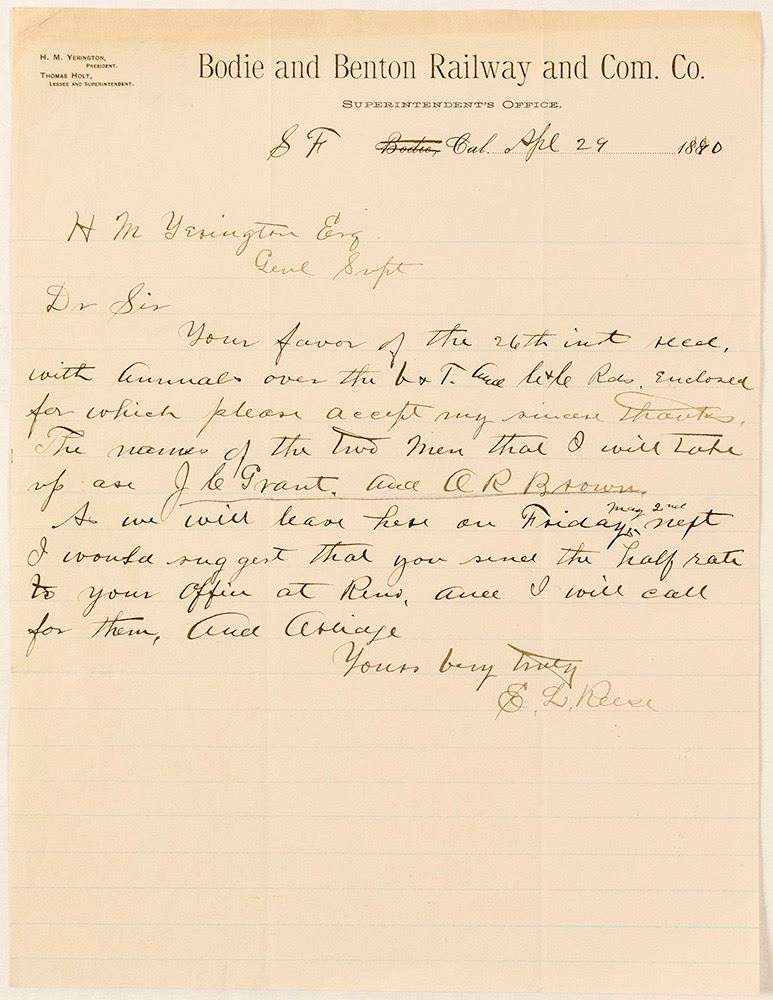 H. M. YERINGTON,
PRESIDENT.
THOMAS HOLT,
LESSEE AND SUPERINTENDENT.
Bodie and Benton Railway and Com. Co.
SUPERINTENDENT'S OFFICE.
S F Bodie, Cal. Apl 29 1890
H M Yerington Esq
Genl Supt
Dr Sir
Your favor of the 26th inst recd.
with Annuals over the V & T. and C & C Rds. Enclosed
for which please accept my sincere thanks.
The names of the two men that I will take
up are J C Grant. and O R Brown.
As we will leave here on Friday May 2nd next
I would suggest that you send the half rate
to your Office at Reno, and I will call
for them, And Oblidge
Yours very truly
E. L. Reese